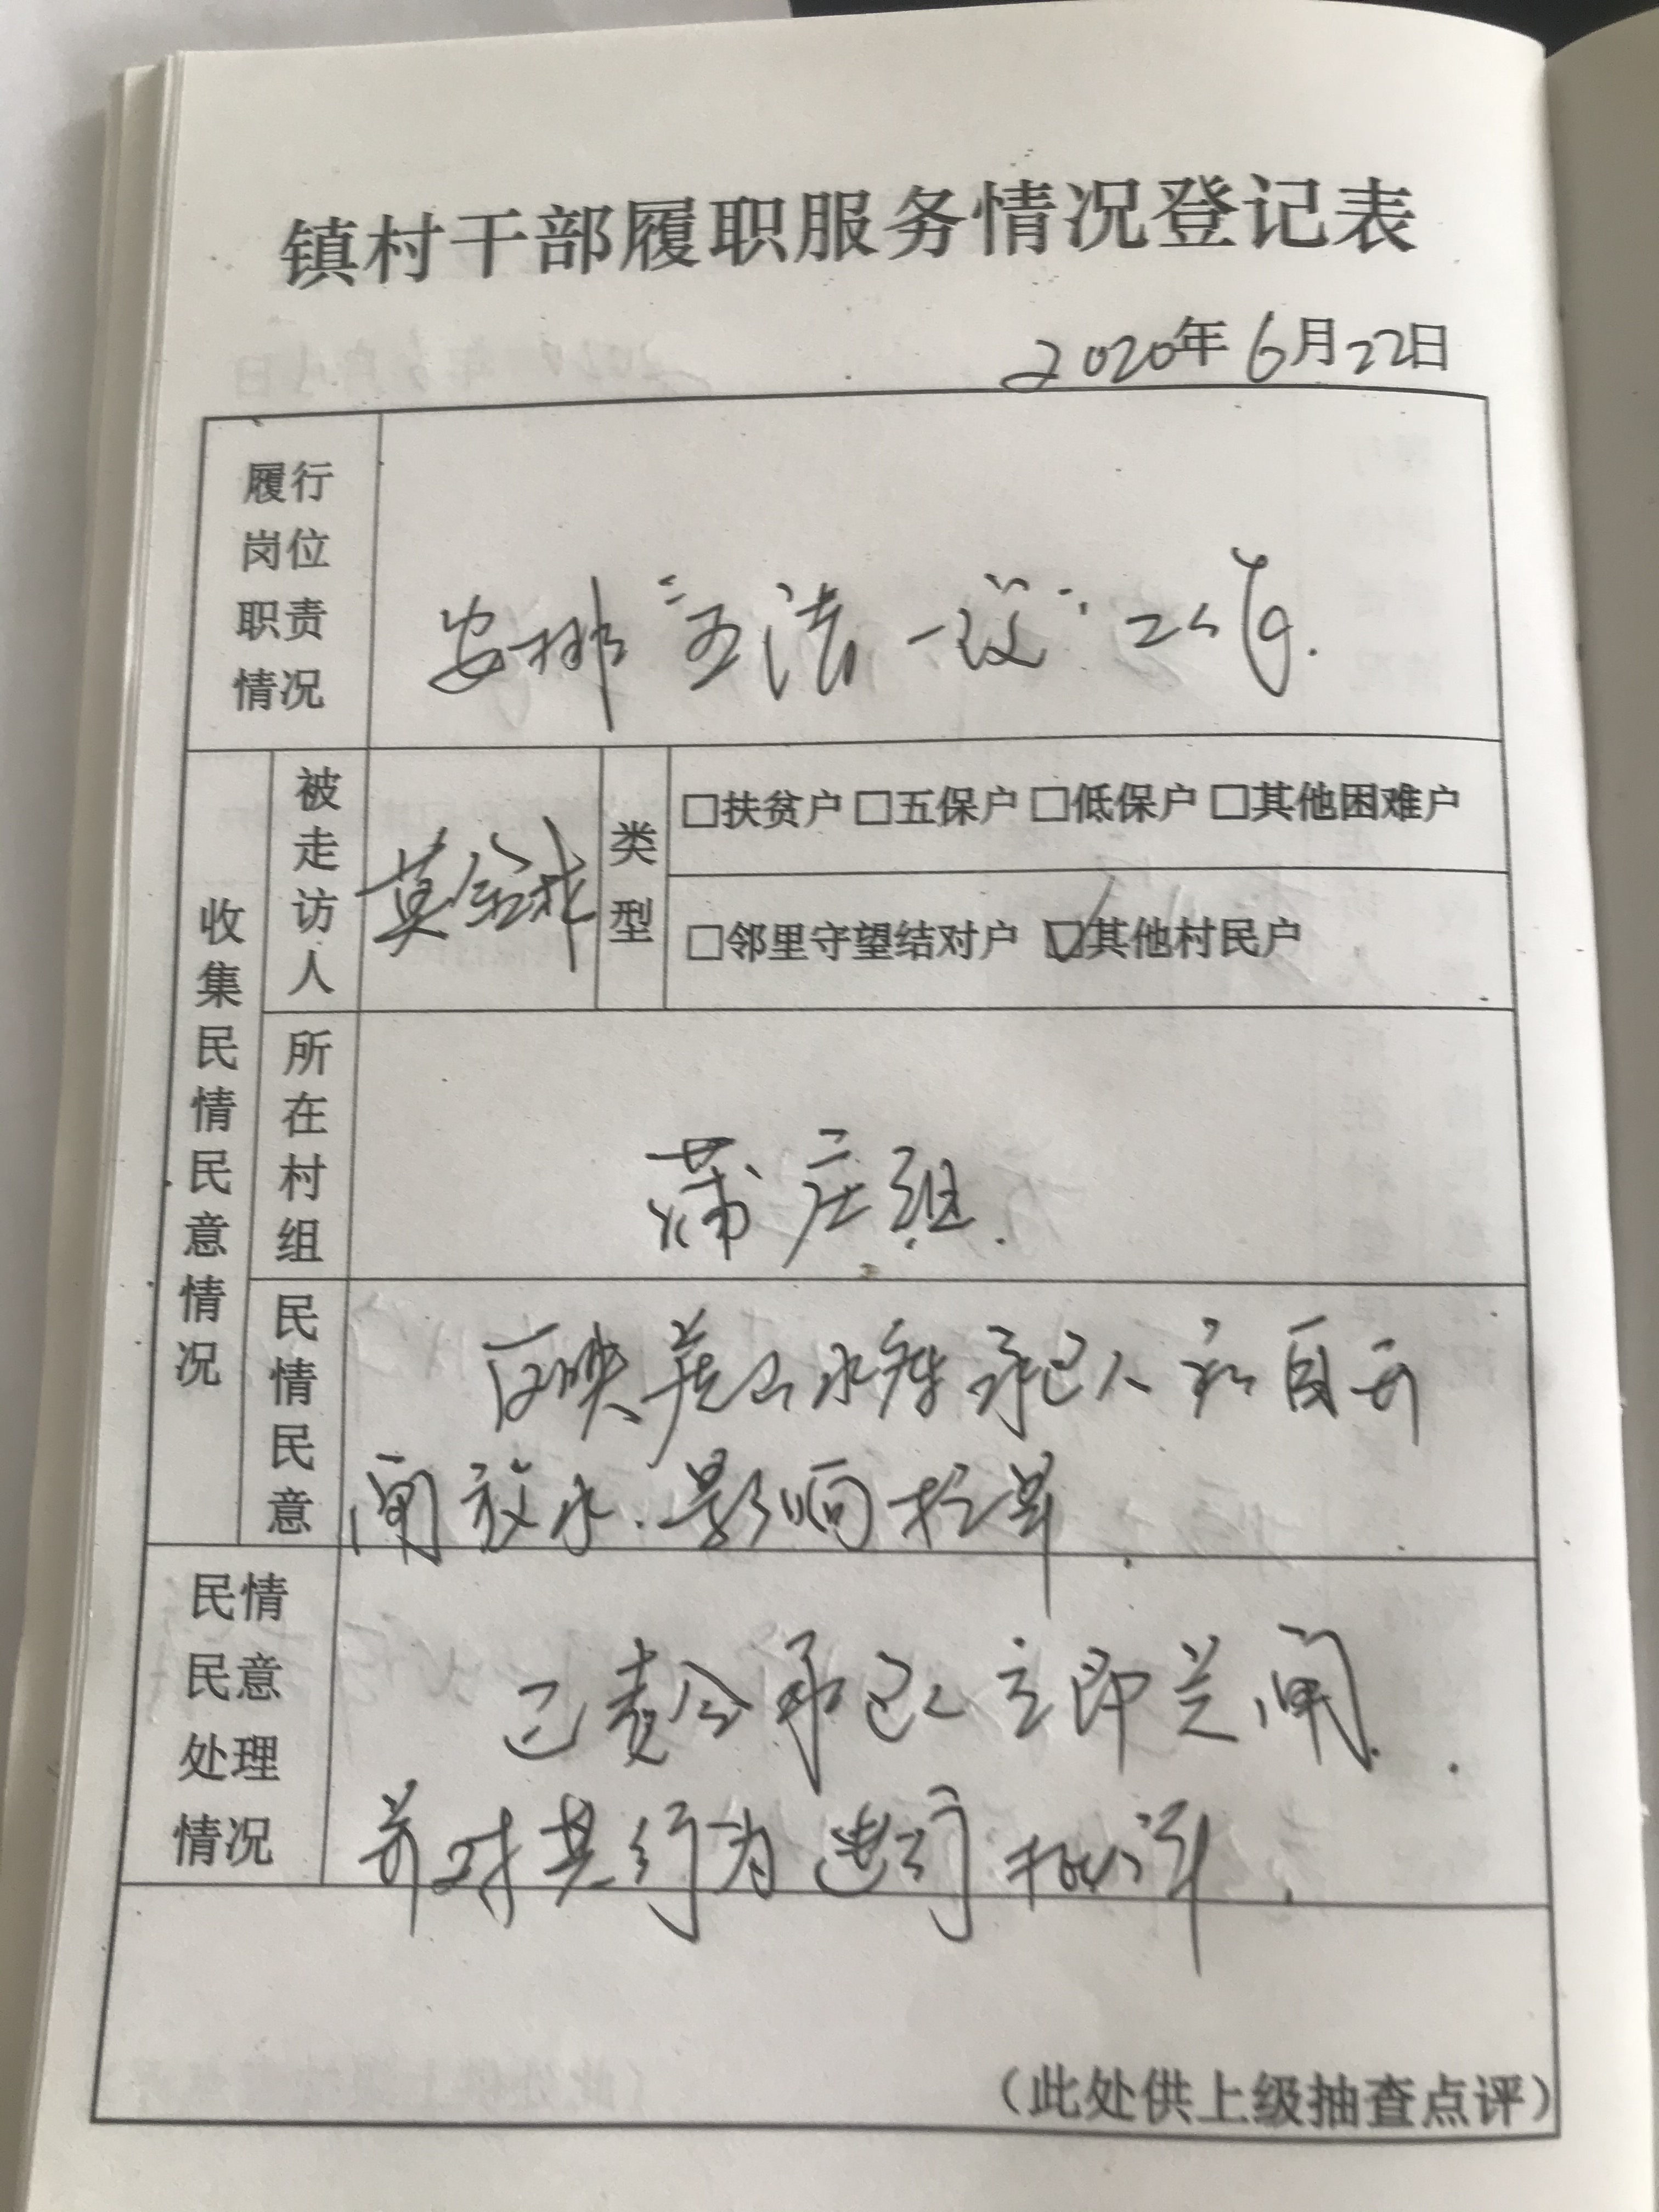 镇村干部履职服务情况登记表
2020年6月22日
履行
岗位
职责
情况
安排“五清一改”工作.
收集民情民意情况
被走访人
莫
类型
□扶贫户 □五保户 □低保户 □其他困难户
□邻里守望结对户 ☑其他村民户
所在村组
蒲庄组.
民情民意
反映 水库承包人 私自开
闸放水.影响
民情
民意
处理
情况
已责令承包人立即关闸.
并对其行为进行批评.
（此处供上级抽查点评）